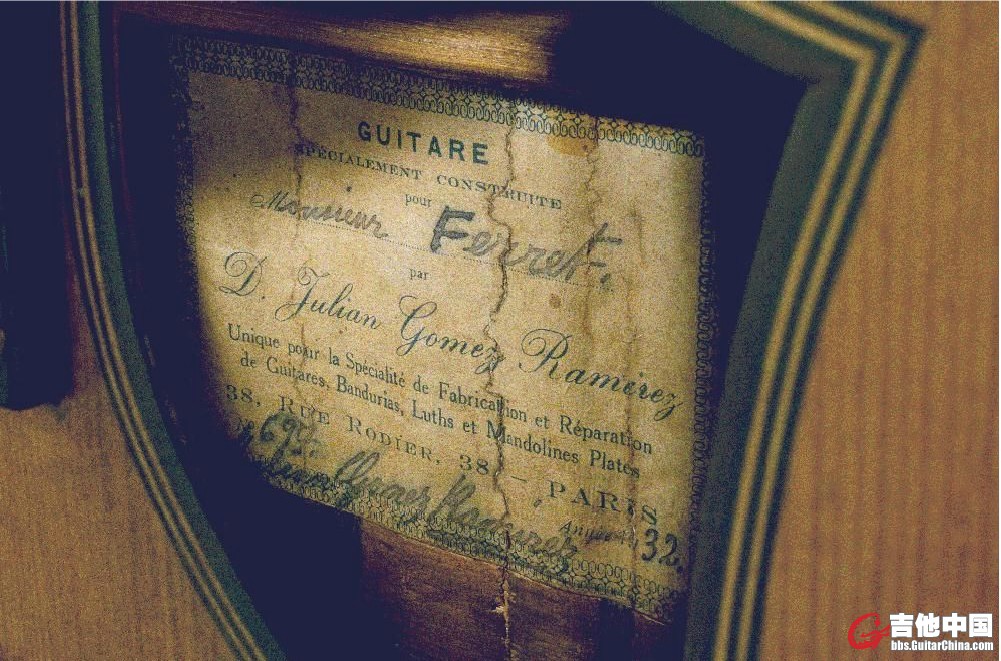 GUITARE
SPÉCIALEMENT CONSTRUITE
pour
Monsieur Ferret.
par
D. Julian Gomez Ramirez
Unique pour la Spécialité de Fabrication et Réparation
de Guitares, Bandurias, Luths et Mandolines Plates
38, RUE RODIER, 38 – PARIS
Gomez Ramirez
32.
吉他中国
bbs.GuitarChina.com